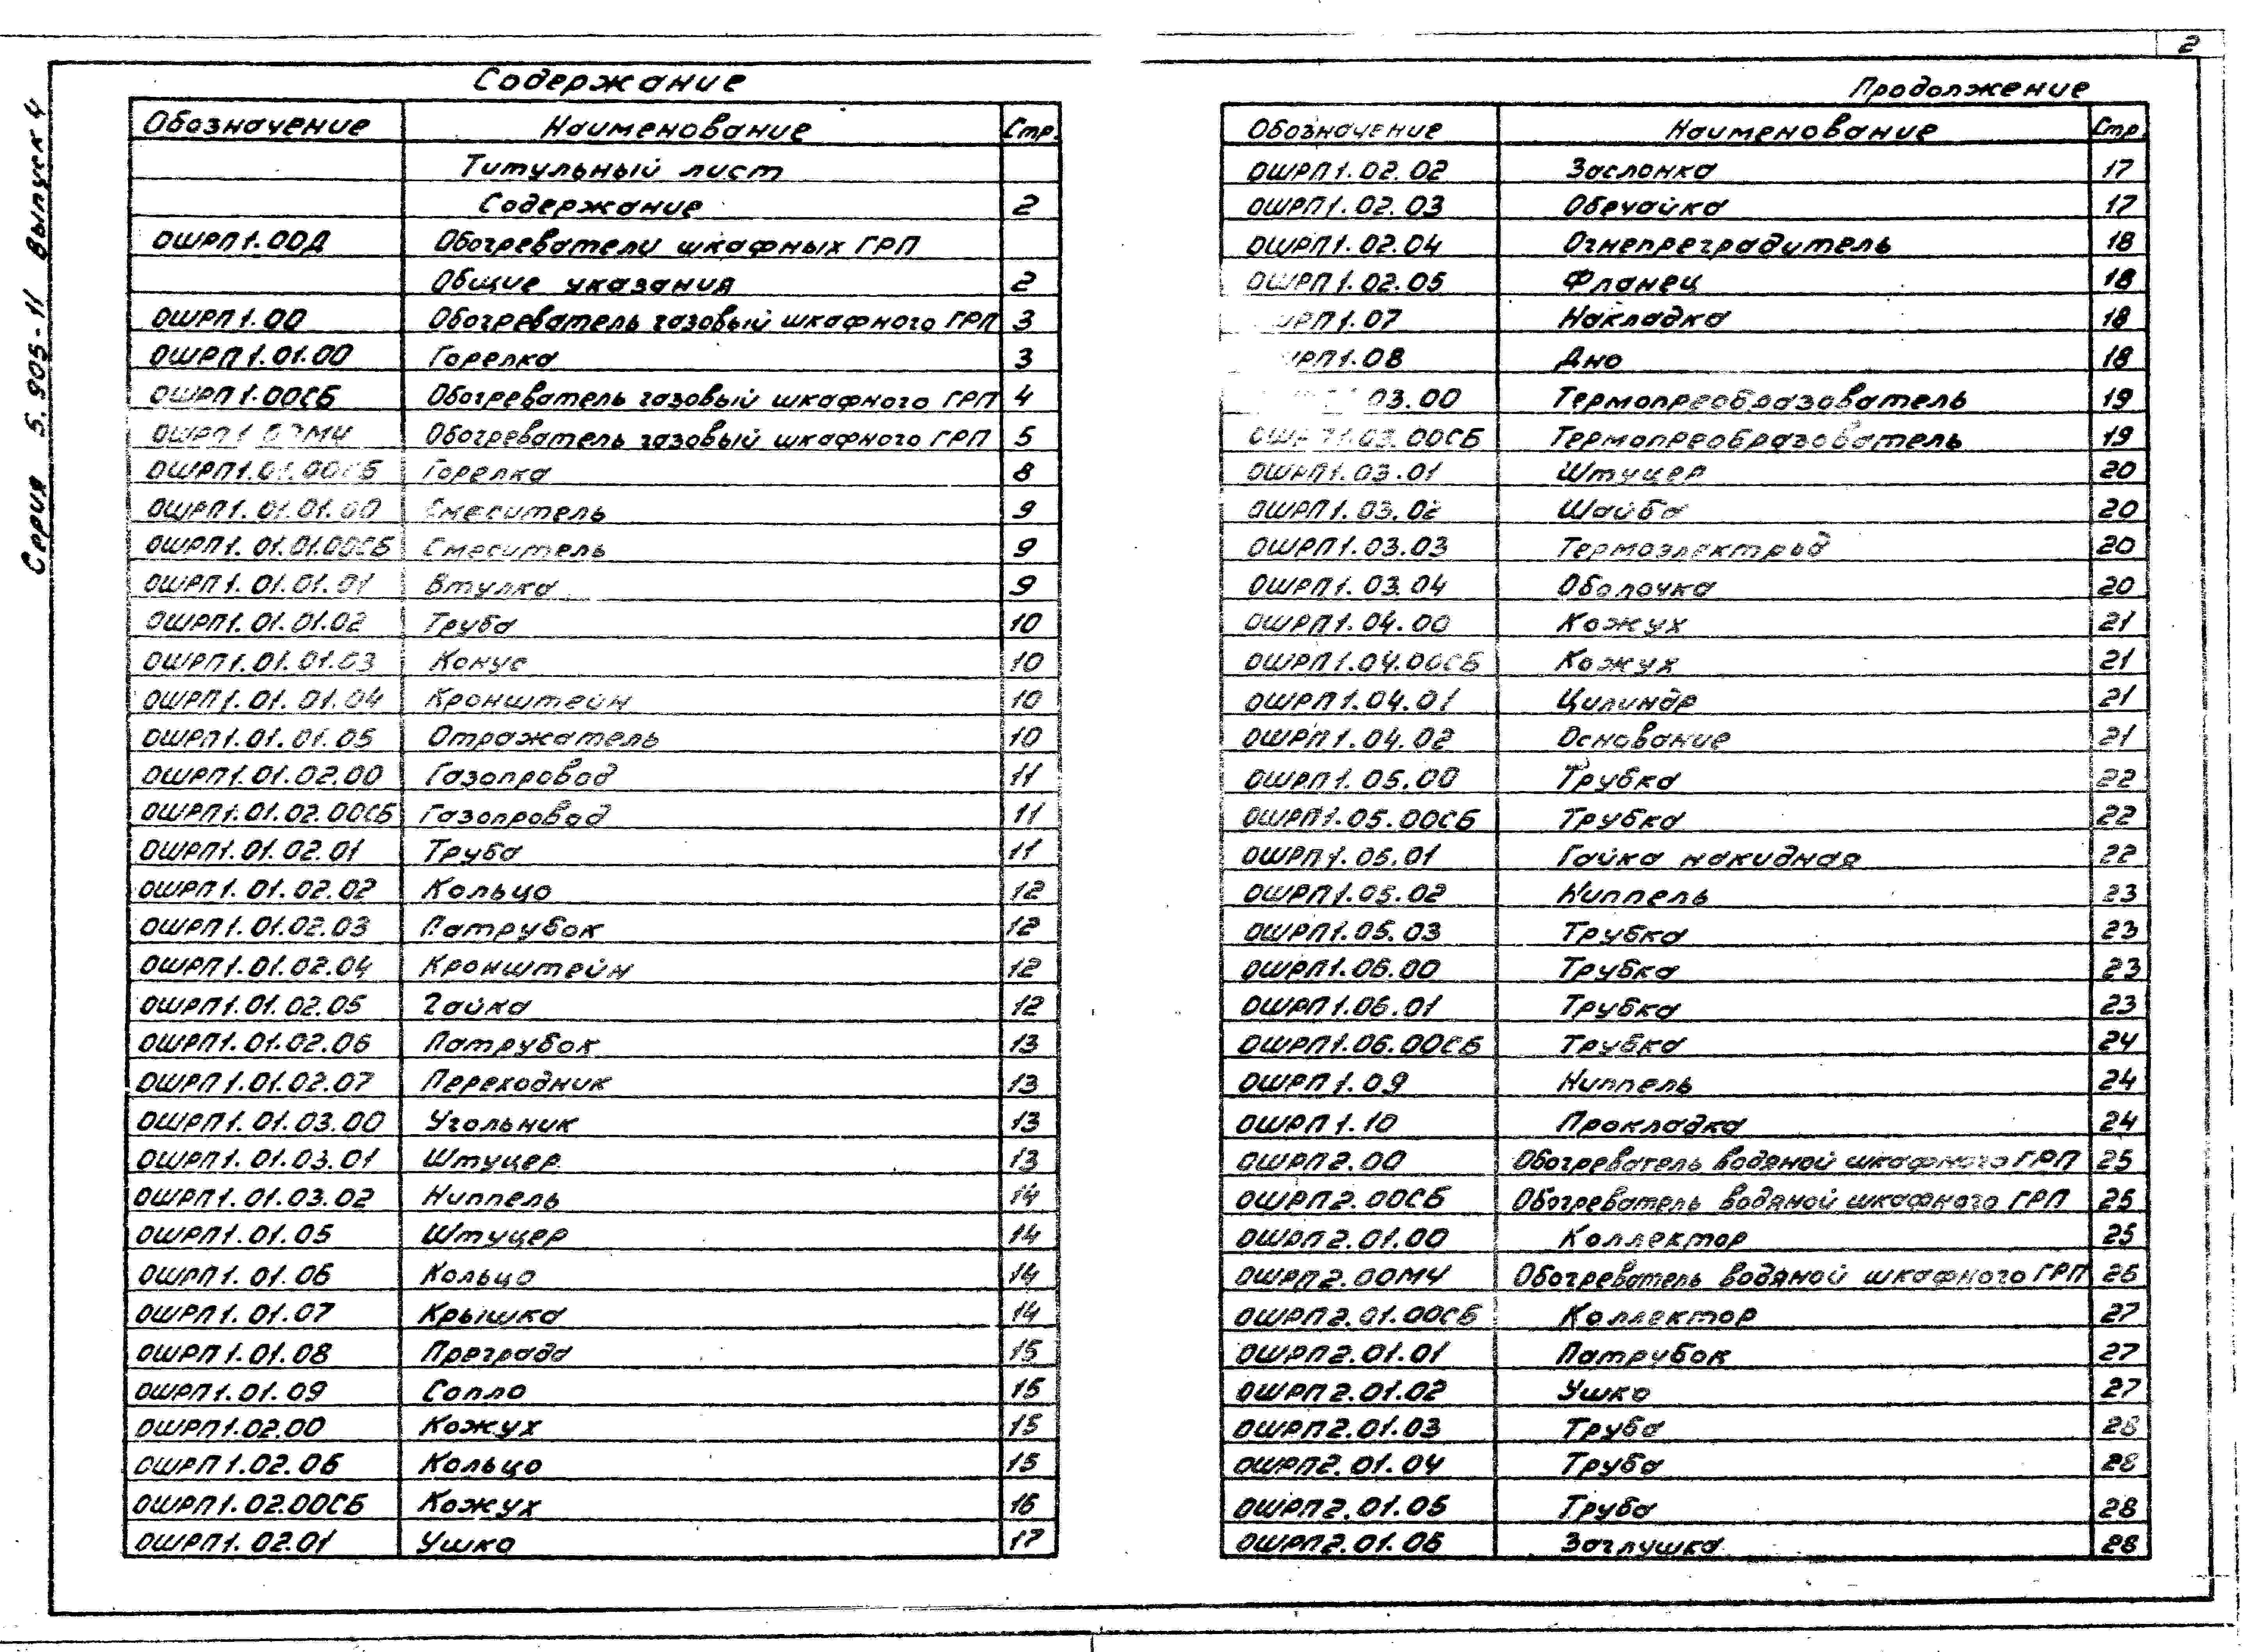 2
Серия 5.905-11 Выпуск 4
Содержание
Обозначение Наименование Стр.
Титульный лист
Содержание 2
ОШРП1.00Д Обогреватели шкафных ГРП
Общие указания 2
ОШРП1.00 Обогреватель газовый шкафного ГРП 3
ОШРП1.01.00 Горелка 3
ОШРП1.00СБ Обогреватель газовый шкафного ГРП 4
Обогреватель газовый шкафного ГРП 5
ОШРП1.01.00СБ Горелка 8
ОШРП1.01.01.00 Смеситель 9
ОШРП1.01.01.00СБ Смеситель 9
ОШРП1.01.01.01 Втулка 9
ОШРП1.01.01.02 Труба 10
ОШРП1.01.01.03 Конус 10
ОШРП1.01.01.04 Кронштейн 10
ОШРП1.01.01.05 Отражатель 10
ОШРП1.01.02.00 Газопровод 11
ОШРП1.01.02.00СБ Газопровод 11
ОШРП1.01.02.01 Труба 11
ОШРП1.01.02.02 Кольцо 12
ОШРП1.01.02.03 Патрубок 12
ОШРП1.01.02.04 Кронштейн 12
ОШРП1.01.02.05 Гайка 12
ОШРП1.01.02.06 Патрубок 13
ОШРП1.01.02.07 Переходник 13
ОШРП1.01.03.00 Угольник 13
ОШРП1.01.03.01 Штуцер 13
ОШРП1.01.03.02 Ниппель 14
ОШРП1.01.05 Штуцер 14
ОШРП1.01.06 Кольцо 14
ОШРП1.01.07 Крышка 14
ОШРП1.01.08 Преграда 15
ОШРП1.01.09 Сопло 15
ОШРП1.02.00 Кожух 15
ОШРП1.02.06 Кольцо 15
ОШРП1.02.00СБ Кожух 16
ОШРП1.02.01 Ушко 17
Продолжение
Обозначение Наименование Стр.
ОШРП1.02.02 Заслонка 17
ОШРП1.02.03 Обечайка 17
ОШРП1.02.04 Огнепреградитель 18
ОШРП1.02.05 Фланец 18
РП1.07 Накладка 18
РП1.08 Дно 18
03.00 Термопреобразователь 19
ОШРП1.03.00СБ Термопреобразователь 19
ОШРП1.03.01 Штуцер 20
ОШРП1.03.02 Шайба 20
ОШРП1.03.03 Термоэлектрод 20
ОШРП1.03.04 Оболочка 20
ОШРП1.04.00 Кожух 21
ОШРП1.04.00СБ Кожух 21
ОШРП1.04.01 Цилиндр 21
ОШРП1.04.02 Основание 21
ОШРП1.05.00 Трубка 22
ОШРП1.05.00СБ Трубка 22
ОШРП1.05.01 Гайка накидная 22
ОШРП1.05.02 Ниппель 23
ОШРП1.05.03 Трубка 23
ОШРП1.06.00 Трубка 23
ОШРП1.06.01 Трубка 23
ОШРП1.06.00СБ Трубка 24
ОШРП1.09 Ниппель 24
ОШРП1.10 Прокладка 24
ОШРП2.00 Обогреватель водяной шкафного ГРП 25
ОШРП2.00СБ Обогреватель водяной шкафного ГРП 25
ОШРП2.01.00 Коллектор 25
ОШРП2.00МЧ Обогреватель водяной шкафного ГРП 26
ОШРП2.01.00СБ Коллектор 27
ОШРП2.01.01 Патрубок 27
ОШРП2.01.02 Ушко 27
ОШРП2.01.03 Труба 28
ОШРП2.01.04 Труба 28
ОШРП2.01.05 Труба 28
ОШРП2.01.06 Заглушка 28